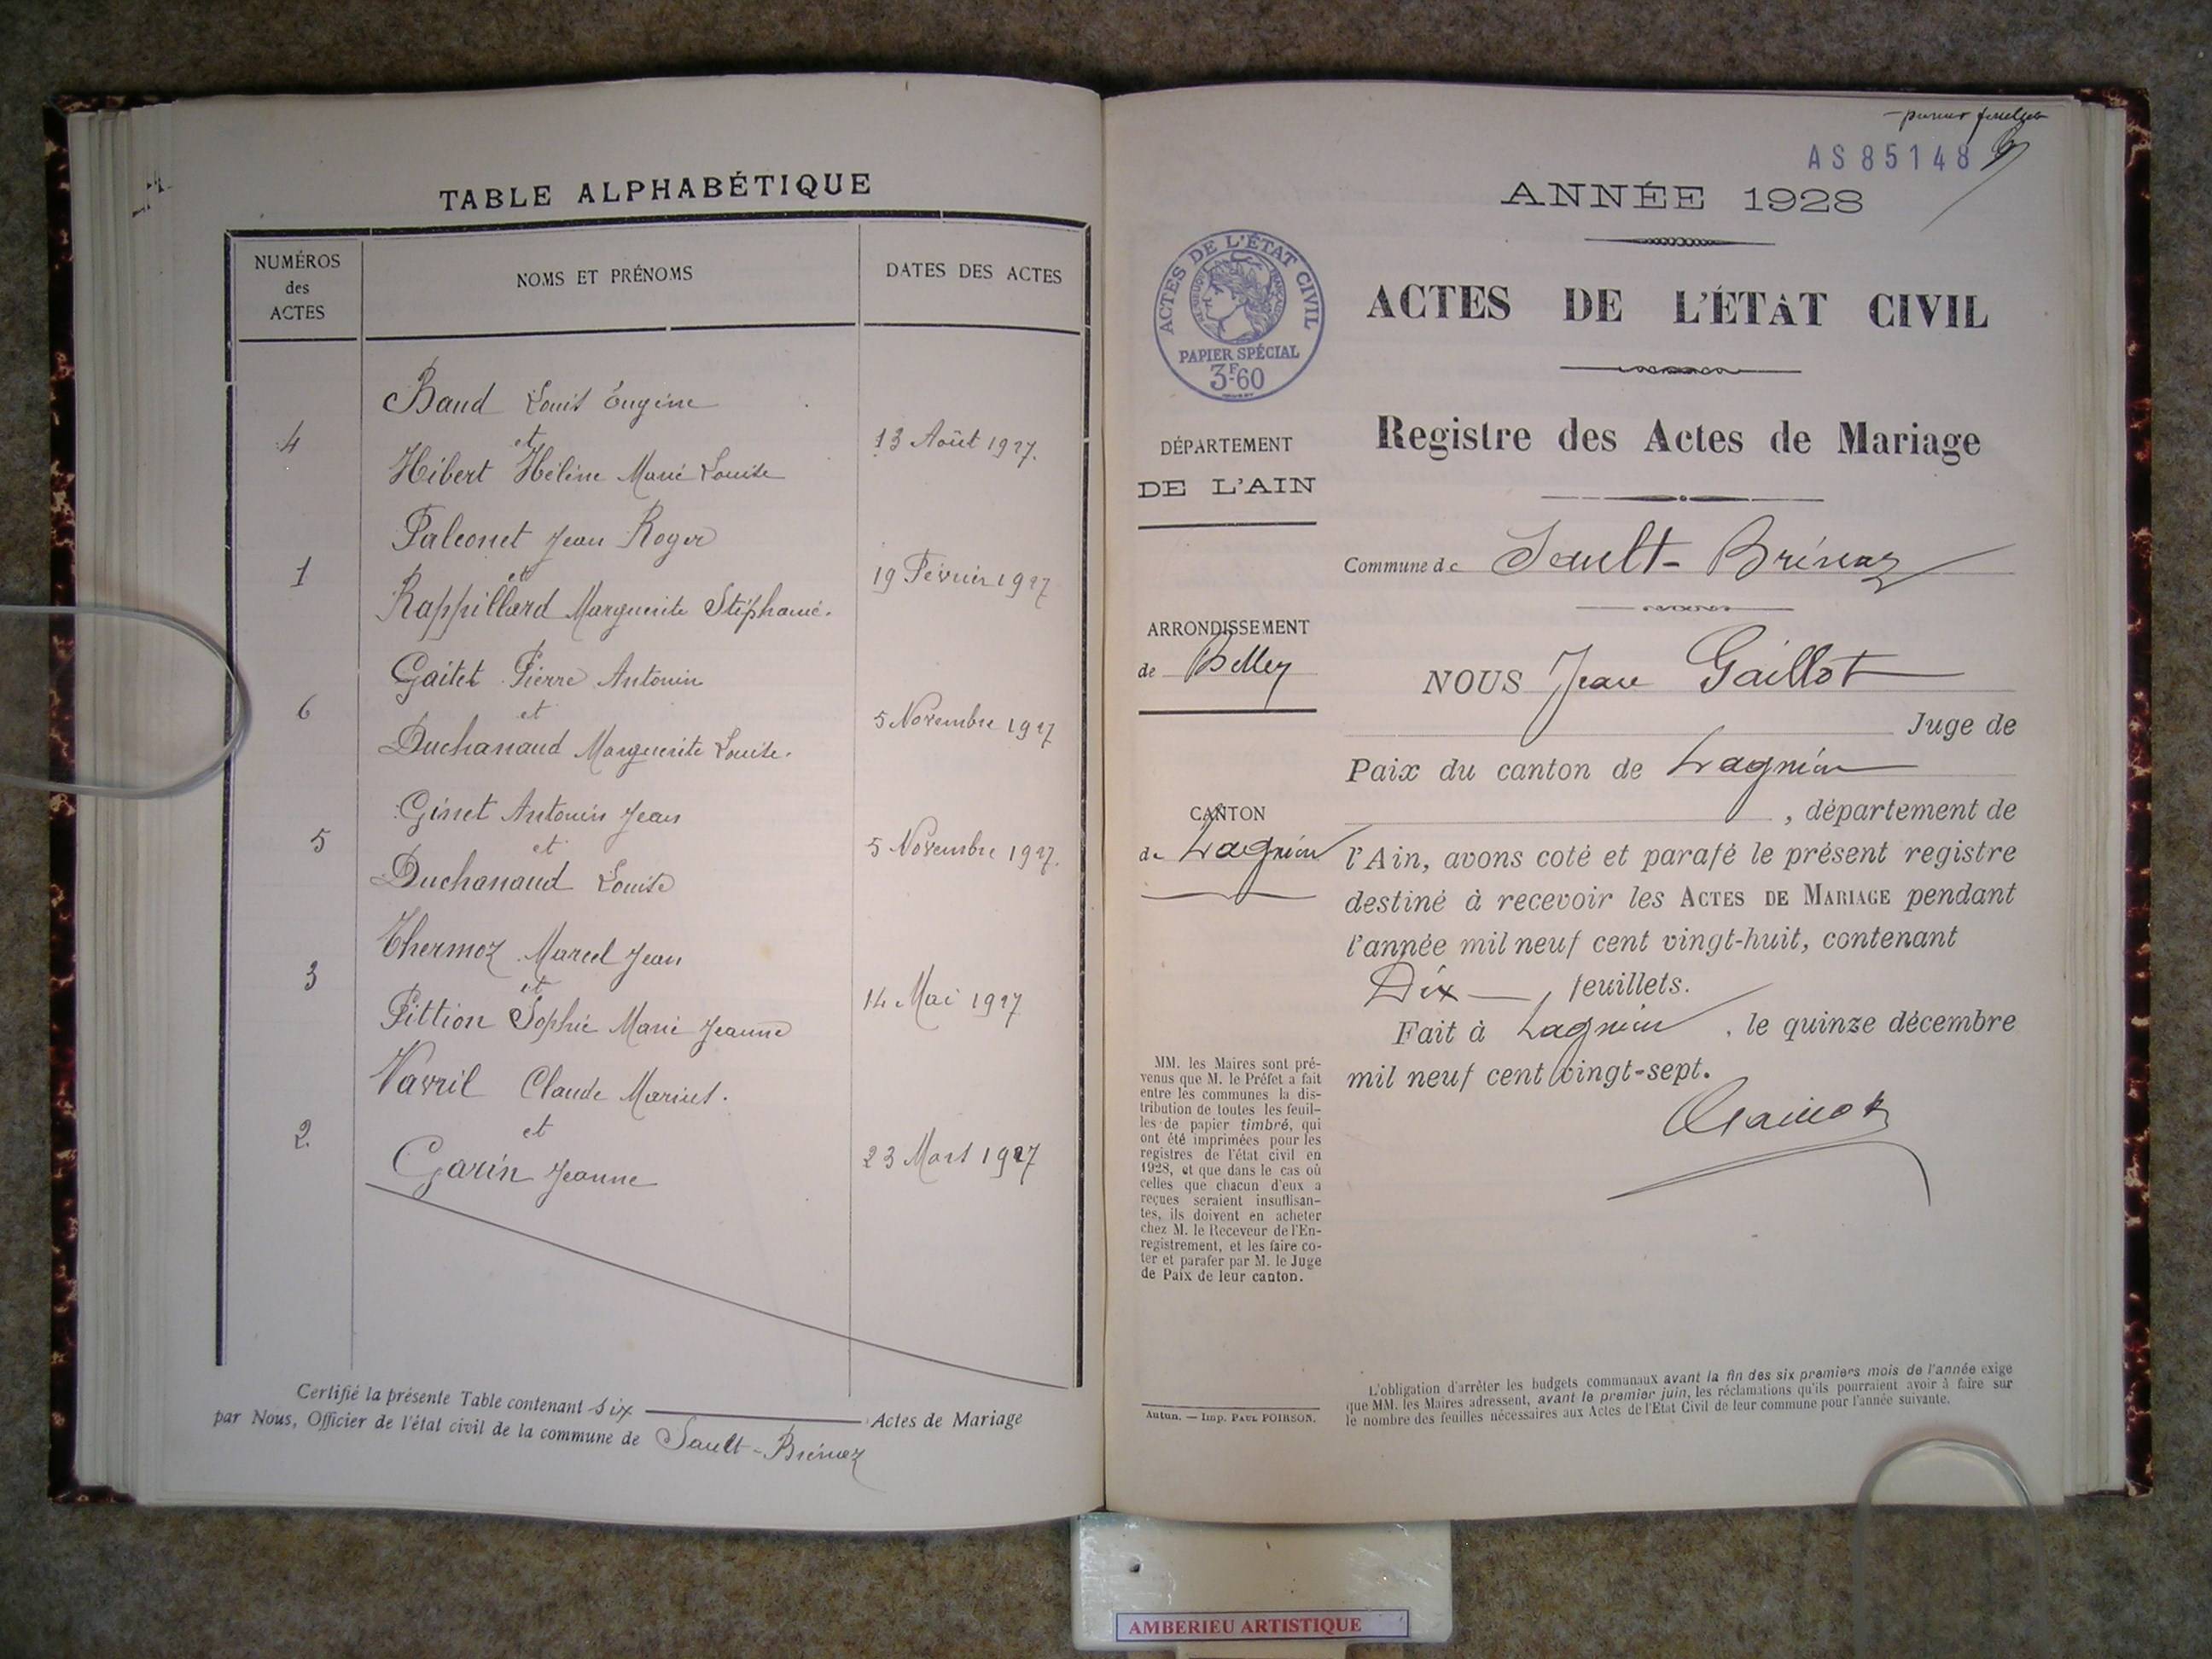 TABLE ALPHABÉTIQUE
NUMÉROS
des
ACTES
NOMS ET PRÉNOMS
DATES DES ACTES
Baud Louis Eugène
4
et
13 Août 1927.
Hibert Hélène Marie Louise
Falconet Jean Roger
1
et
19 Février 1927
Rappillard Marguerite Stéphanie.
Gaitet Pierre Antonin
6
et
5 Novembre 1927
Duchanaud Marguerite Louise.
Ginet Antonin Jean
5
et
5 Novembre 1927.
Duchanaud Louise
Thermoz Marcel Jean
3
et
14 Mai 1927
Pittion Sophie Marie Jeanne
Vavril Claude Marius.
2.
et
23 Mars 1927
Garin Jeanne
Certifié la présente Table contenant Six Actes de Mariage
par Nous, Officier de l'état civil de la commune de Sault-Brénaz
premier feuillet
AS 85148
ANNÉE 1928
ACTES DE L'ÉTAT CIVIL
PAPIER SPÉCIAL
3F60
ACTES DE L'ÉTAT CIVIL
Registre des Actes de Mariage
DÉPARTEMENT
DE L'AIN
Commune de Sault-Brénaz
ARRONDISSEMENT
de Belley
NOUS Jean Gaillot
Juge de
Paix du canton de Lagnieu
CANTON
de Lagnieu
, département de
l'Ain, avons coté et parafé le présent registre
destiné à recevoir les ACTES DE MARIAGE pendant
l'année mil neuf cent vingt-huit, contenant
Dix, feuillets.
Fait à Lagnieu, le quinze décembre
mil neuf cent vingt-sept.
Gaillot
MM. les Maires sont pré-
venus que M. le Préfet a fait
entre les communes la dis-
tribution de toutes les feuil-
les de papier timbré, qui
ont été imprimées pour les
registres de l'état civil en
1928, et que dans le cas où
celles que chacun d'eux a
reçues seraient insuffisan-
tes, ils doivent en acheter
chez M. le Receveur de l'En-
registrement, et les faire co-
ter et parafer par M. le Juge
de Paix de leur canton.
Autun. — Imp. PAUL POIRSON.
L'obligation d'arrêter les budgets communaux avant la fin des six premiers mois de l'année exige
que MM. les Maires adressent, avant le premier juin, les réclamations qu'ils pourraient avoir à faire sur
le nombre des feuilles nécessaires aux Actes de l'Etat Civil de leur commune pour l'année suivante.
AMBERIEU ARTISTIQUE